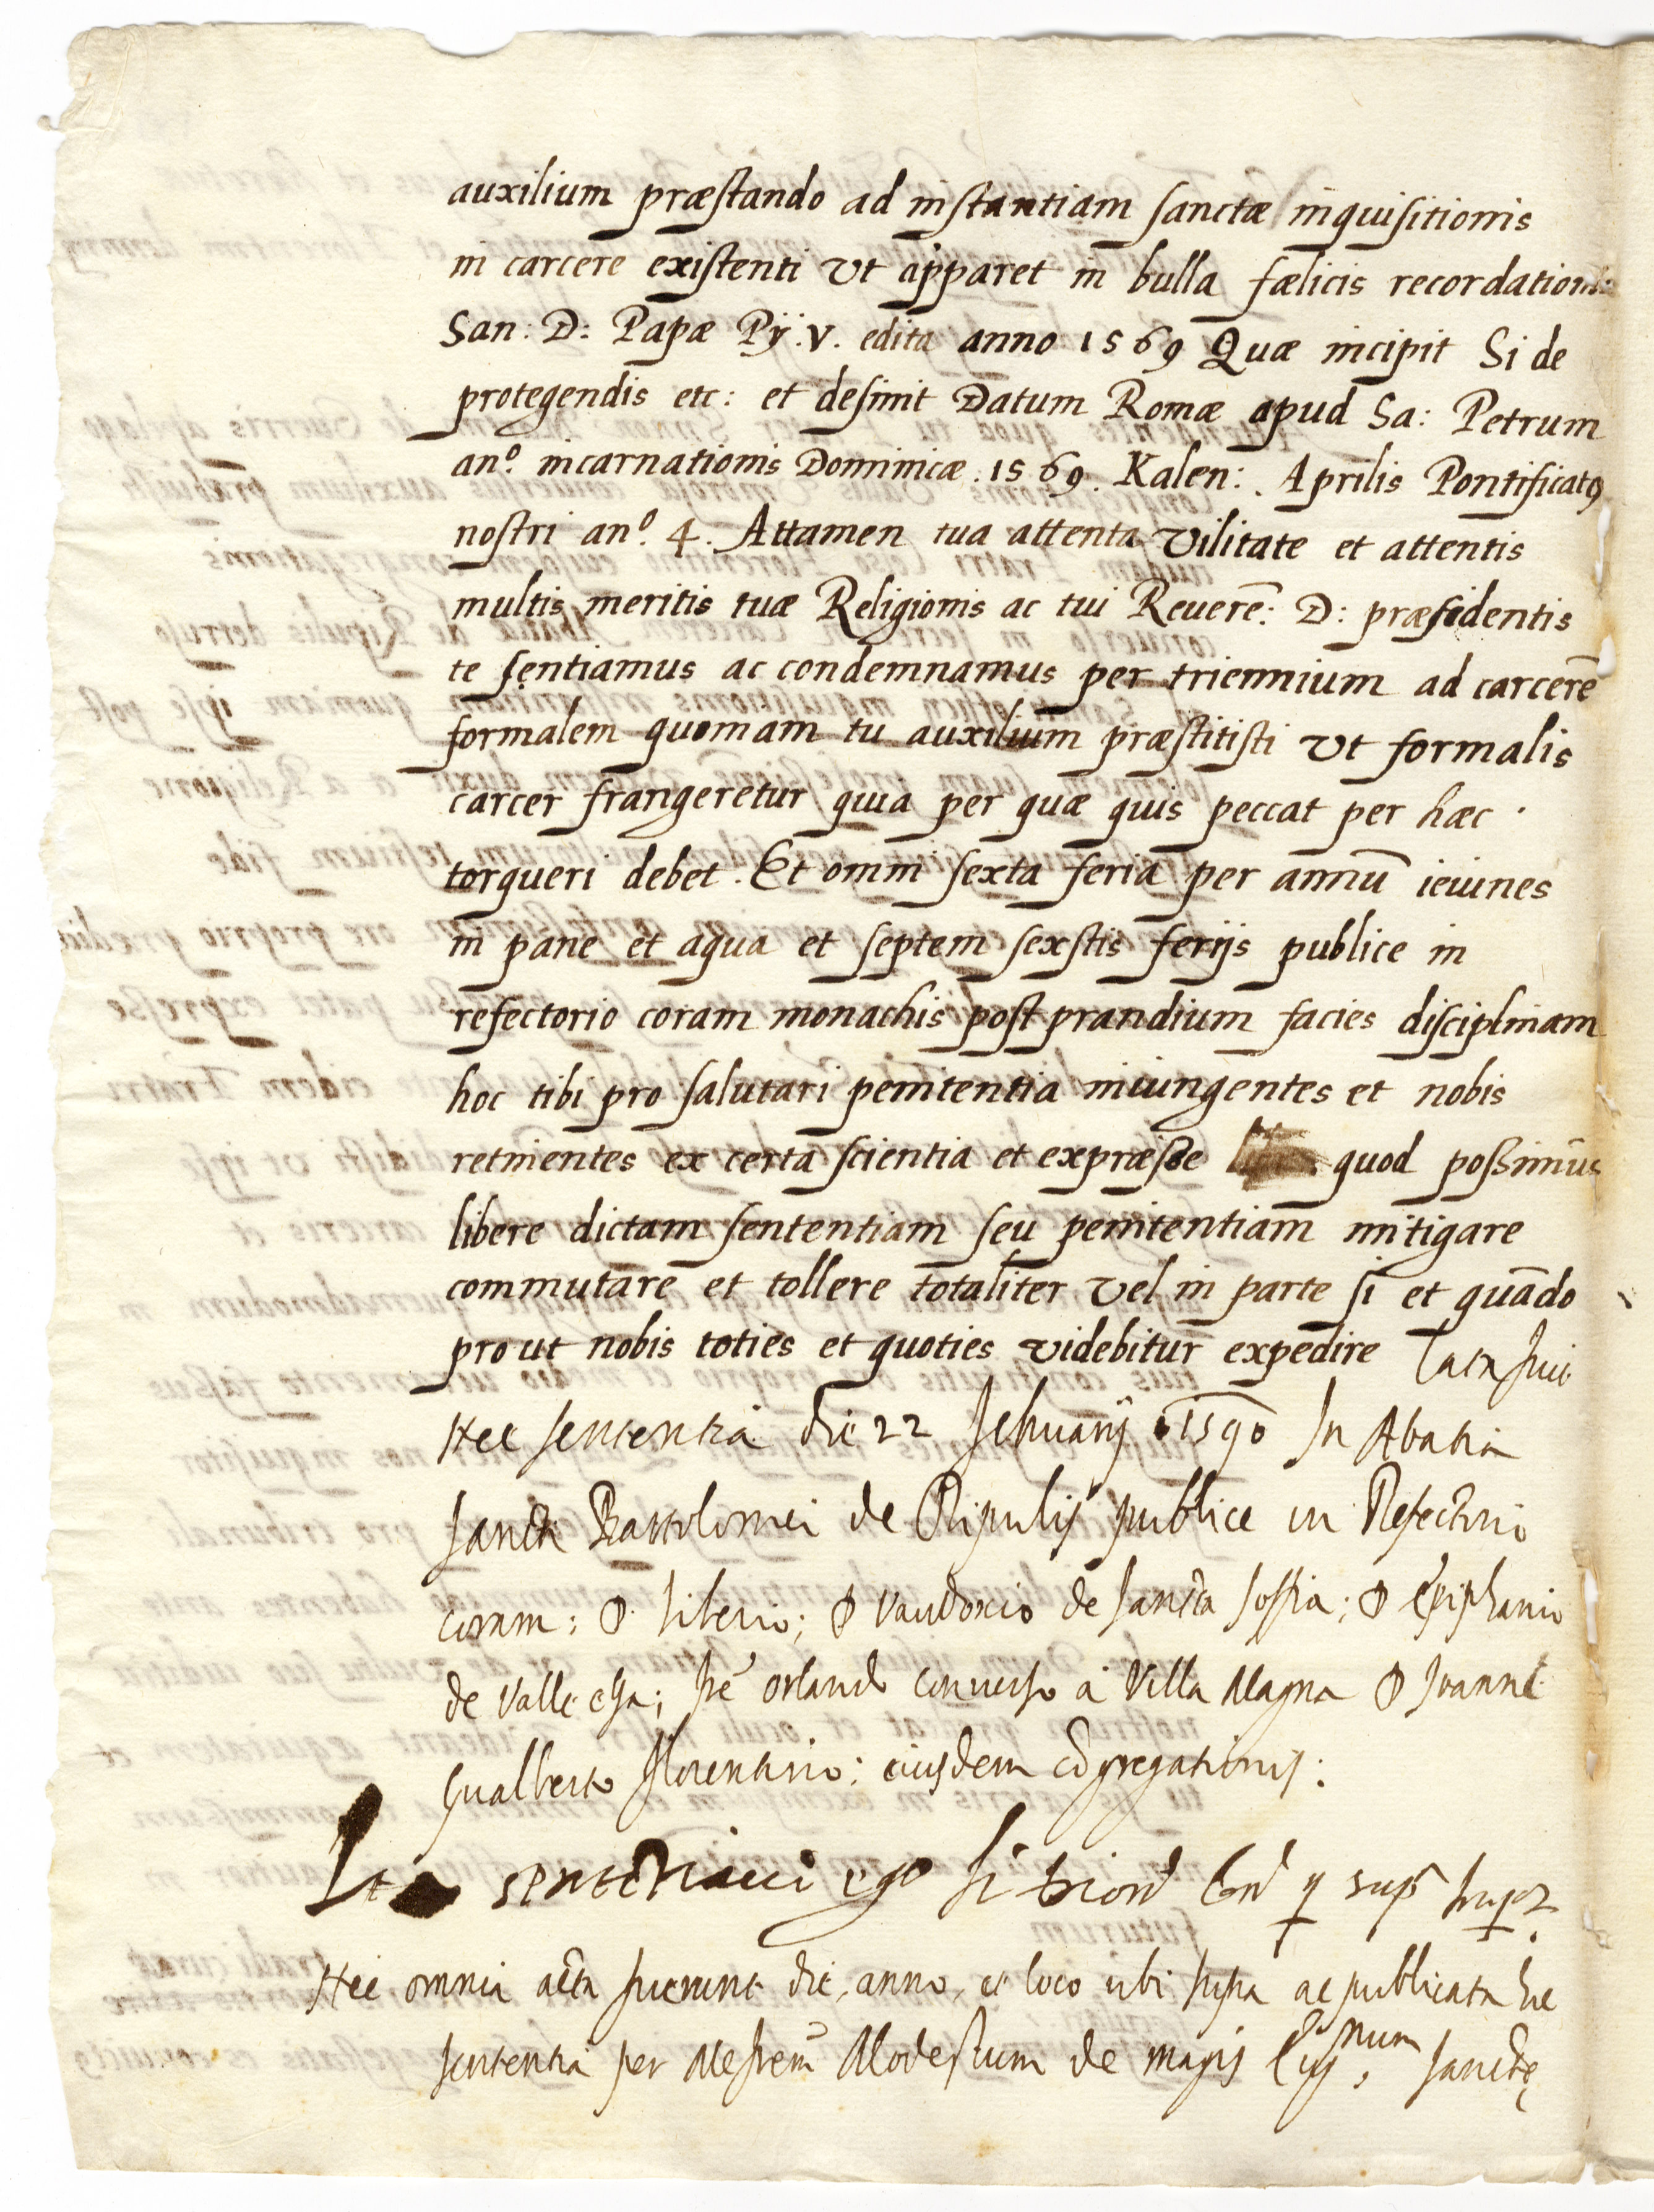 auxilium præstando ad instantiam sanctæ inquisitionis
in carcere existenti vt apparet in bulla fælicis recordationis
San: D: Papæ Pÿ. V. edita anno 1569 Quæ incipit Si de
protegendis etc: et desinit Datum Romæ apud Sa: Petrum
anº. incarnationis Dominicæ. 1569. Kalen: Aprilis Pontificatꝯ
nostri anº. 4. Attamen tua attenta vilitate et attentis
multis meritis tuæ Religionis ac tui Reuerẽ: D: præsidentis
te sentiamus ac condemnamus per triennium ad carcerẽ
formalem quoniam tu auxilium præstitisti vt formalis
carcer frangeretur quia per quæ quis peccat per hæc
torqueri debet. Et omni sexta feria per annũ ieiunes
in pane et aqua et septem sexstis ferijs publice in
refectorio coram monachis post prandium facies disciplinam
hoc tibi pro salutari penitentia iniungentes et nobis
retinentes ex certa scientia et expræsse quod possimus
libere dictam sententiam seu penitentiam mitigare
commutare et tollere totaliter vel in parte si et quãdo
pro ut nobis toties et quoties videbitur expedire Lata fuit
Hec sententia die 22 1590 In Abatia
Sancti Bartolomei de Ripulis publice in Refectorio
coram: D. Liberio; D de Sancta Soffia; D Epiphanio
de Valle elsa; frẽ Orlando conuerso a Villa Magna D Joanne
Gualberto florentino: eiusdem cõgregationis:
Ita sententiaui ego
Hec omnia acta fuerunt die, anno, et loco ubi supra ac publicata hec
sententia per Modestum de sancte